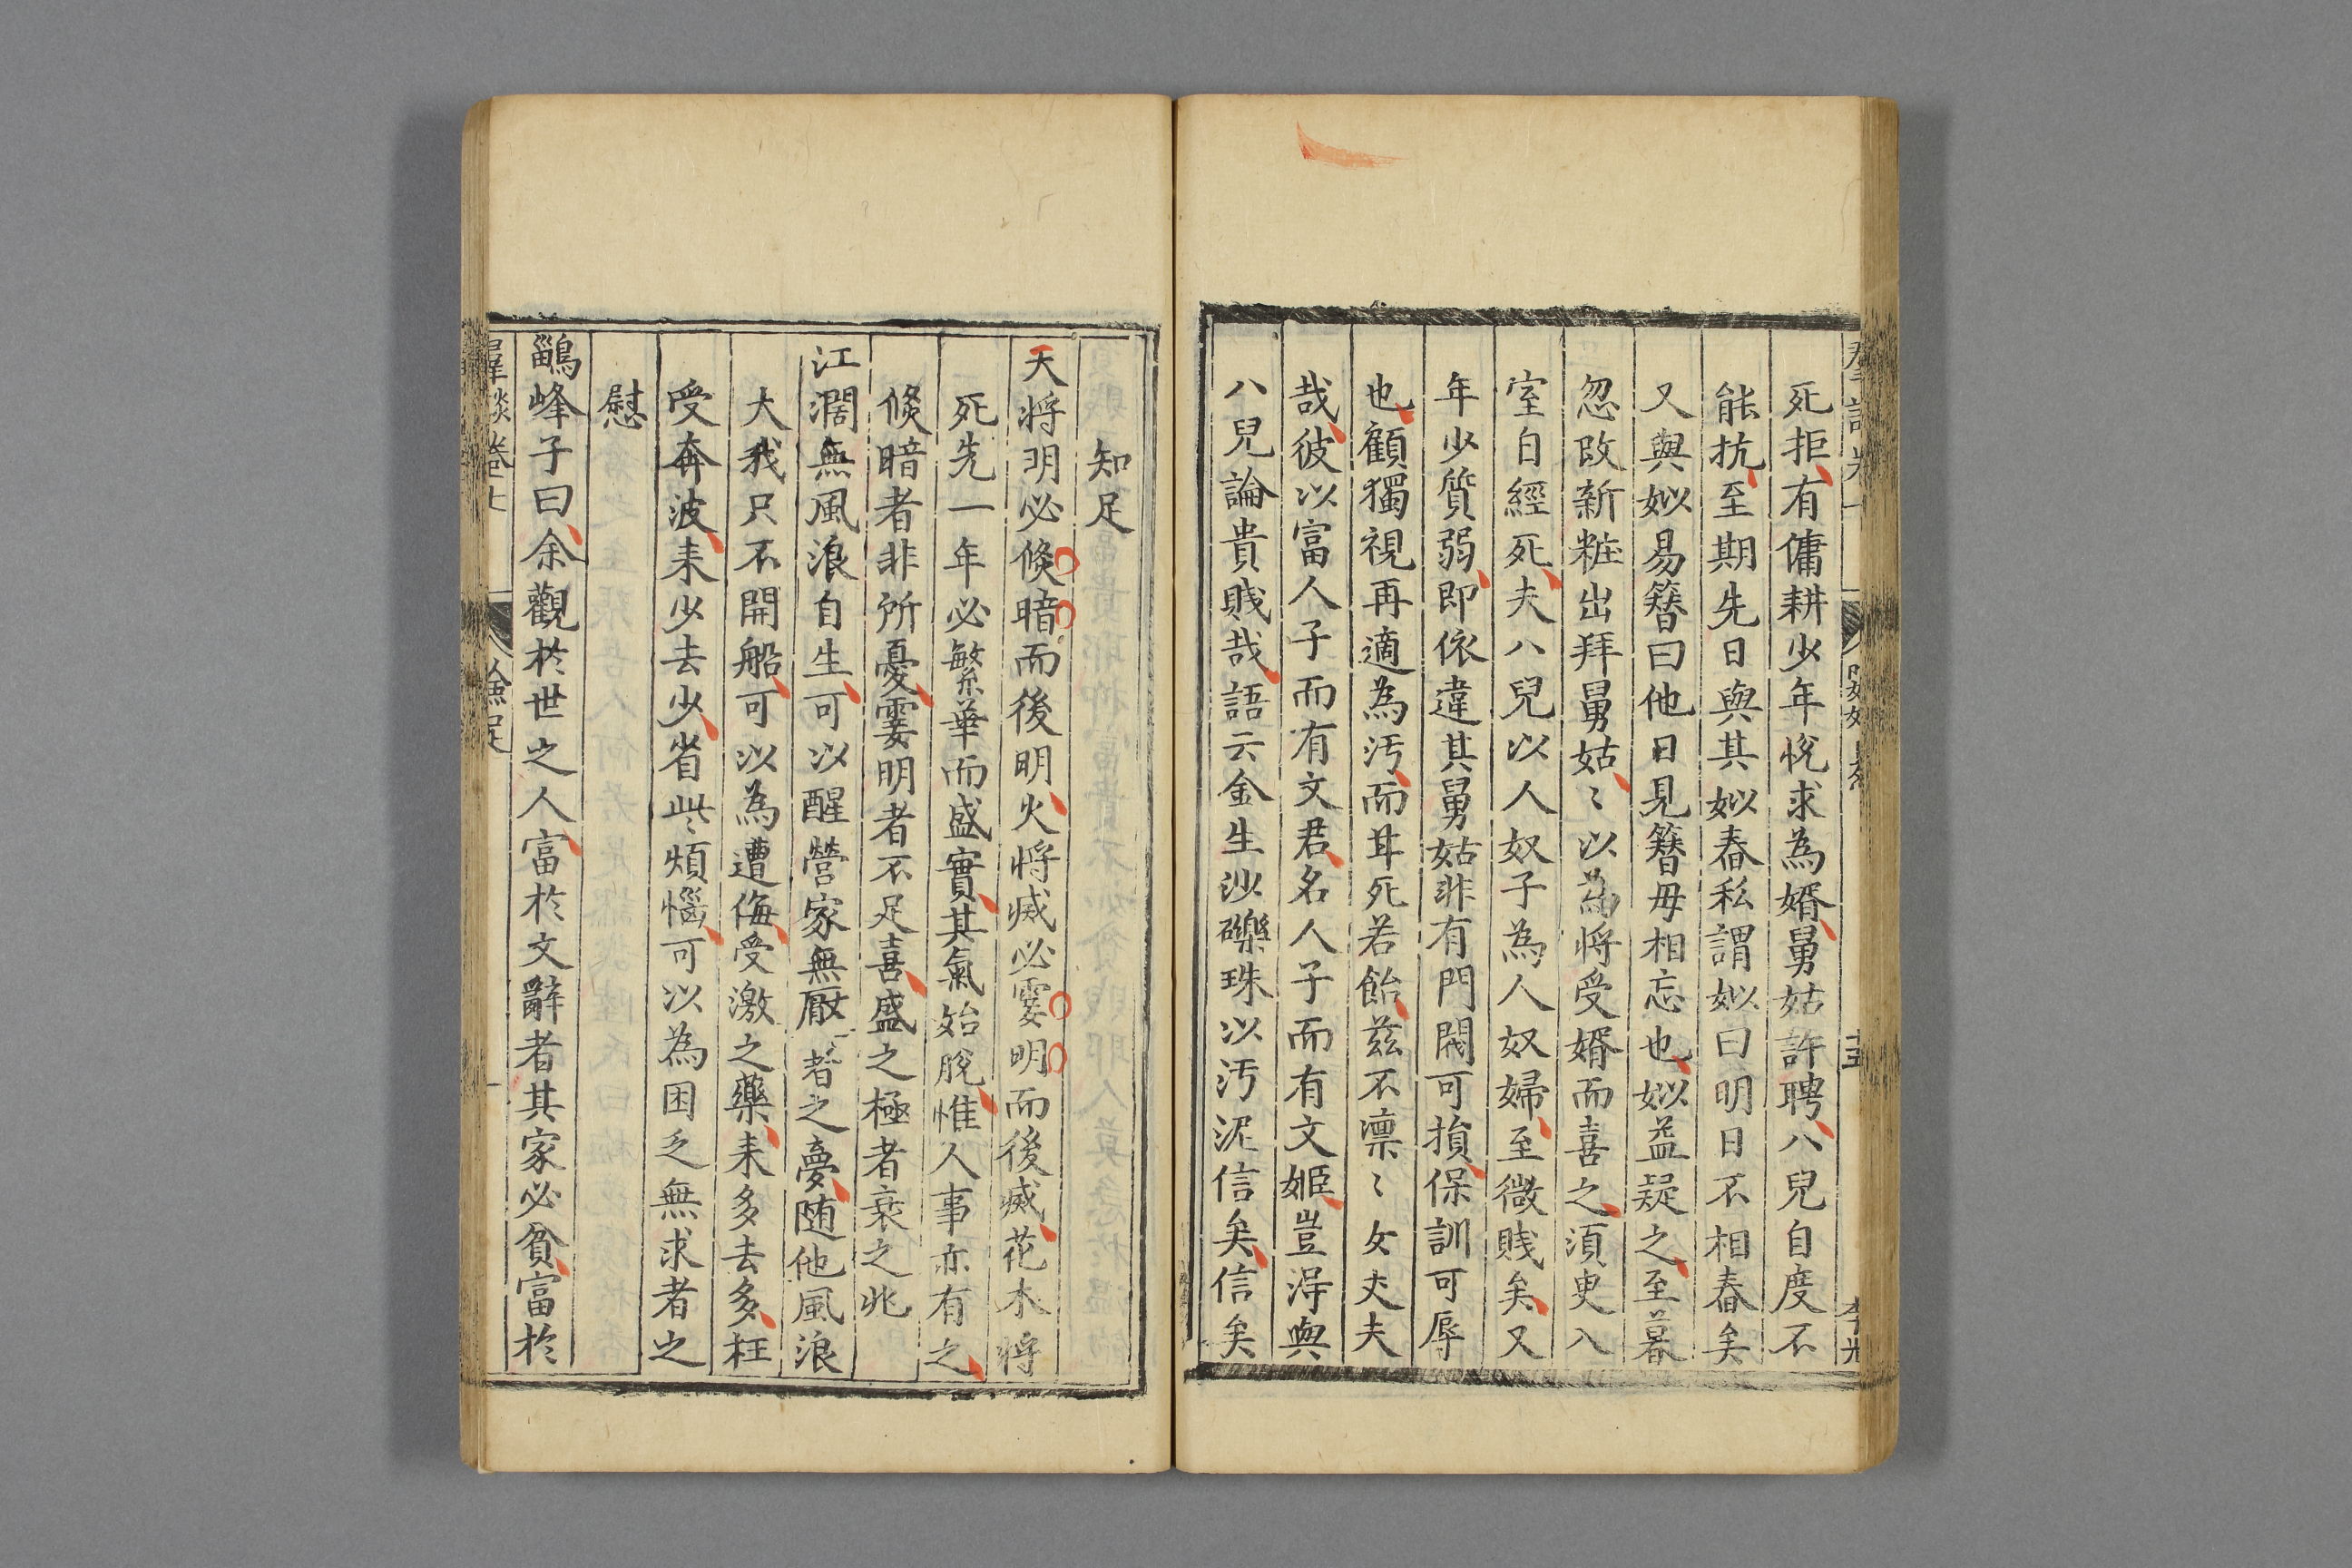 死拒有傭耕少年悅求為婿舅姑許聘八兒自度不
能抗至期先日與其姒舂私謂姒曰明日不相舂矣
又與姒易簪曰他日見簪毋相忘也姒益疑之至暮
忽改新粧出拜舅姑〻以為将受婿而喜之湏臾入
室自經死夫八兒以人奴子為人奴婦至微賤矣又
年少質弱即依違其舅姑非有門閥可損保訓可辱
也顧獨視再適為汚而甘死若飴茲不凛〻女丈夫
哉彼以富人子而有文君名人子而有文姬豈淂與
八兒論貴賤哉語云金生沙礫珠以汚泥信矣信矣
知足
天将明必倐暗而後明火将烕必霎明而後烕花木将
死先一年必繁華而盛實其氣始脫惟人事亦有之
倐暗者非所憂霎明者不足喜盛之極者衰之兆
江濶無風浪自生可以醒營家無厭者之夢随他風浪
大我只不開船可以為遭侮受激之藥来多去多枉
受奔波来少去少省些煩惱可以為困乏無求者之
慰
鷊峰子曰余觀於世之人富於文辭者其家必貧富於